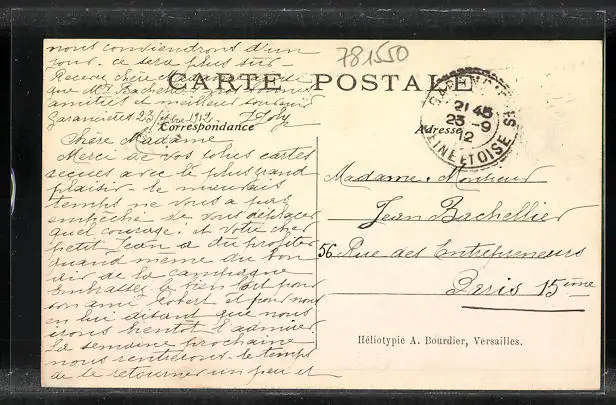 781550
CARTE POSTALE
Correspondance
Adresse
nous conviendrons d'un
jour. ce sera plus sûr.
Recevez chère Madame
que Mr Bachellier
amitiés et meilleur souvenir
Garancières 23 1912
Chère Madame
Merci de vos jolies cartes
reçues avec le plus grand
plaisir. le mauvais
temps ne vous a pas
empêché de vous déplacer
quel courage! et votre cher
petit Jean a dû profiter
quand même du bon
air de la campagne
Embrassez le bien fort pour
son ami Robert et pour nous
en lui disant que nous
irons bientôt l'admirer.
La semaine prochaine
nous rentrerons. le temps
de se retourner un peu et
21 45
23 -9
12
SEINE ET OISE
Madame, Monsieur
Jean Bachellier
56 Rue des Entrepreneurs
Paris 15ème
Héliotypie A. Bourdier, Versailles.